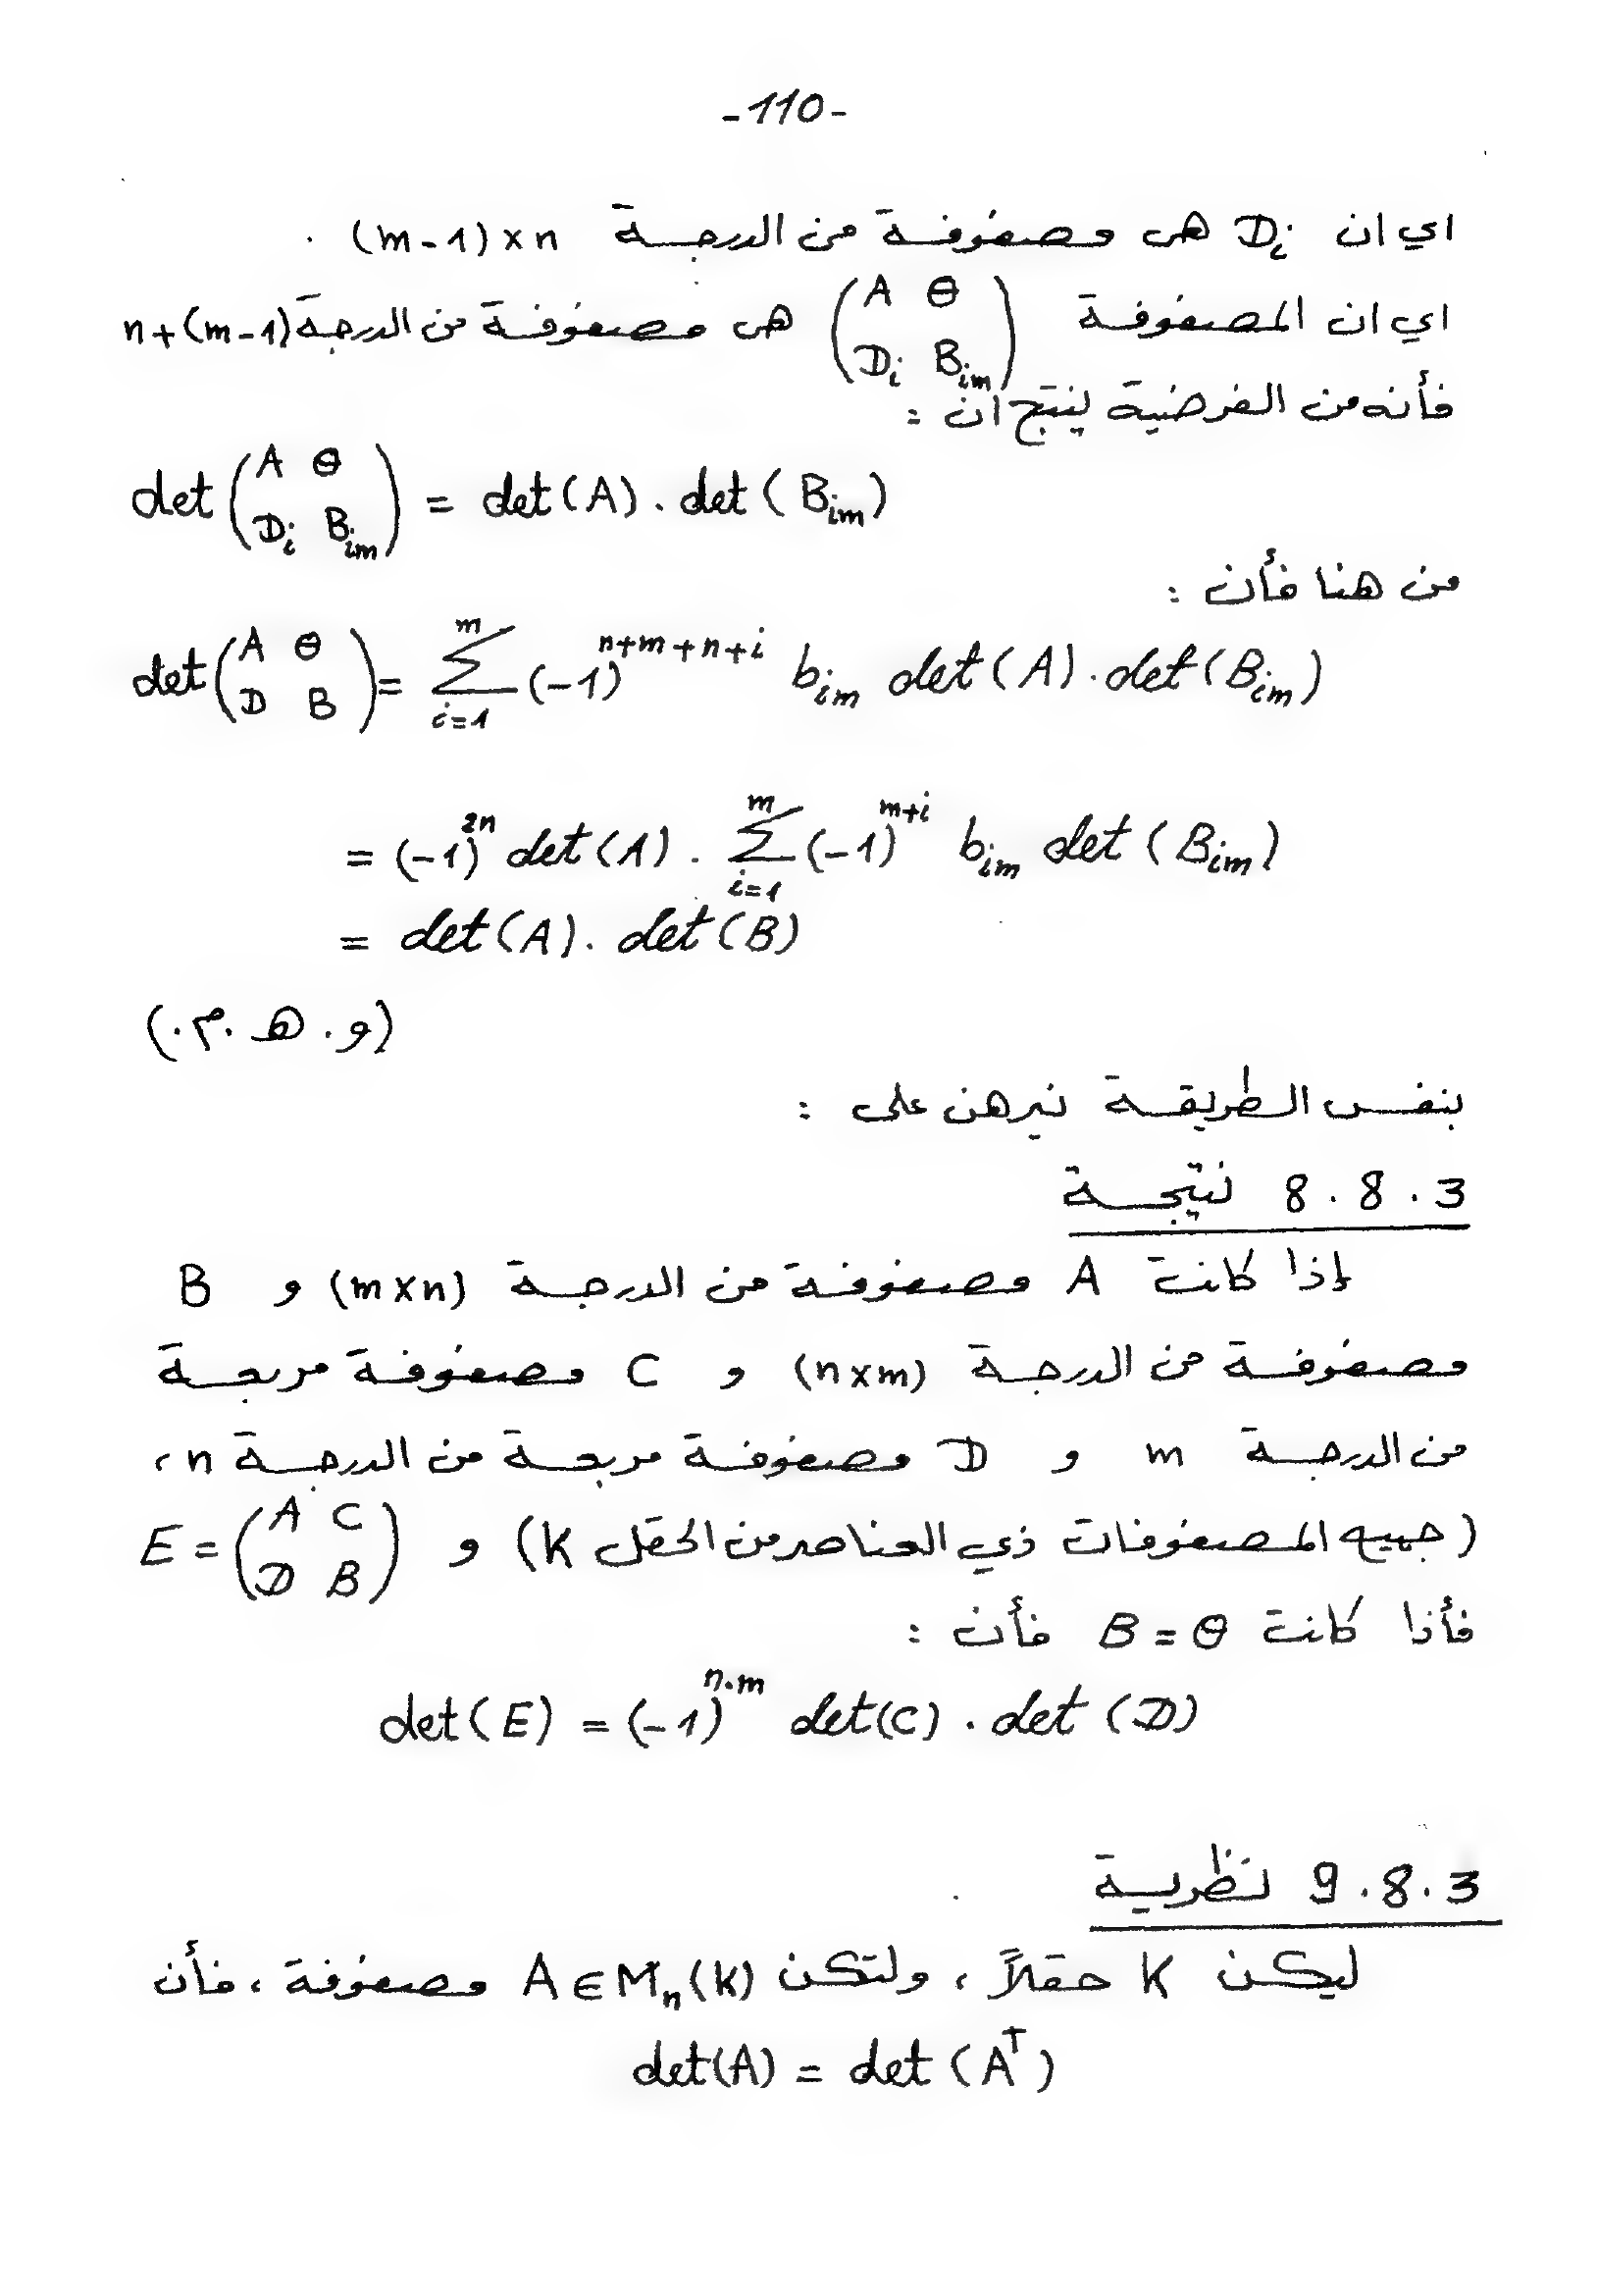 -110-
اي ان Dᵢ هي مصفوفة من الدرجة (m-1)×n .
اي ان المصفوفة (A θ / Dᵢ Bᵢₘ) هي مصفوفة من الدرجة n+(m-1)
فأنه من الفرضية ينتج ان :
det (A θ / Dᵢ Bᵢₘ) = det(A) . det(Bᵢₘ)
من هنا فأن :
det (A θ / D B) = Σ_{i=1}^{m} (-1)^{n+m+n+i} bᵢₘ det(A) . det(Bᵢₘ)
= (-1)^{2n} det(A) . Σ_{i=1}^{m} (-1)^{m+i} bᵢₘ det(Bᵢₘ)
= det(A) . det(B)
(و . هـ . م .)
بنفس الطريقة نبرهن على :
8 . 8 . 3 نتيجة
إذا كانت A مصفوفة من الدرجة (m×n) و B
مصفوفة من الدرجة (n×m) و C مصفوفة مربعة
من الدرجة m و D مصفوفة مربعة من الدرجة n ،
(جميع المصفوفات ذي العناصر من الحقل K) و E = (A C / D B)
فأذا كانت B = θ فأن :
det(E) = (-1)^{n.m} det(C) . det(D)
9 . 8 . 3 نظرية
ليكن K حقلاً ، ولتكن A∈Mₙ(K) مصفوفة ، فأن
det(A) = det(Aᵀ)